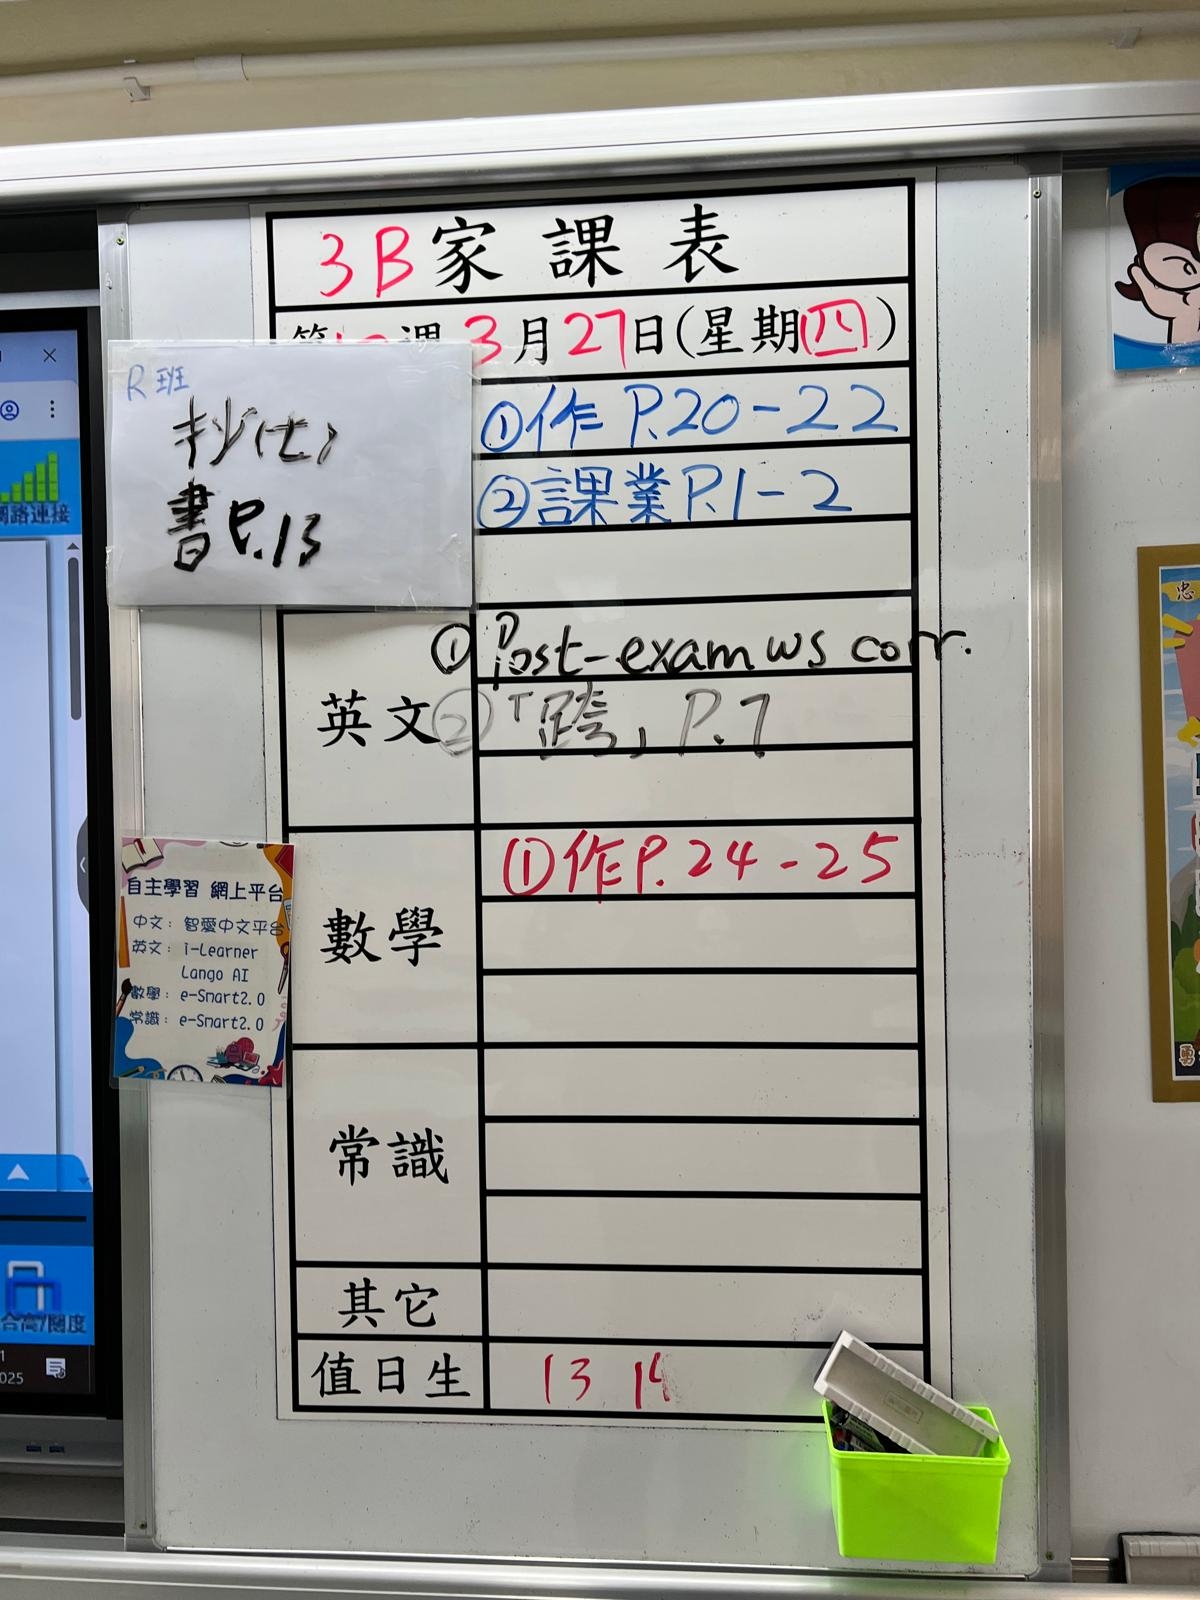 3B家課表
3月27日(星期四)
R班
抄(七)
書P.13
①作 P.20-22
②課業P.1-2
英文
①Post-exam ws corr.
②「跨」P.7
數學
①作P.24-25
常識
其它
值日生
13 14
自主學習 網上平台
中文：智愛中文平台
英文：i-Learner
Lango AI
數學：e-Smart2.0
常識：e-Smart2.0
網路連接